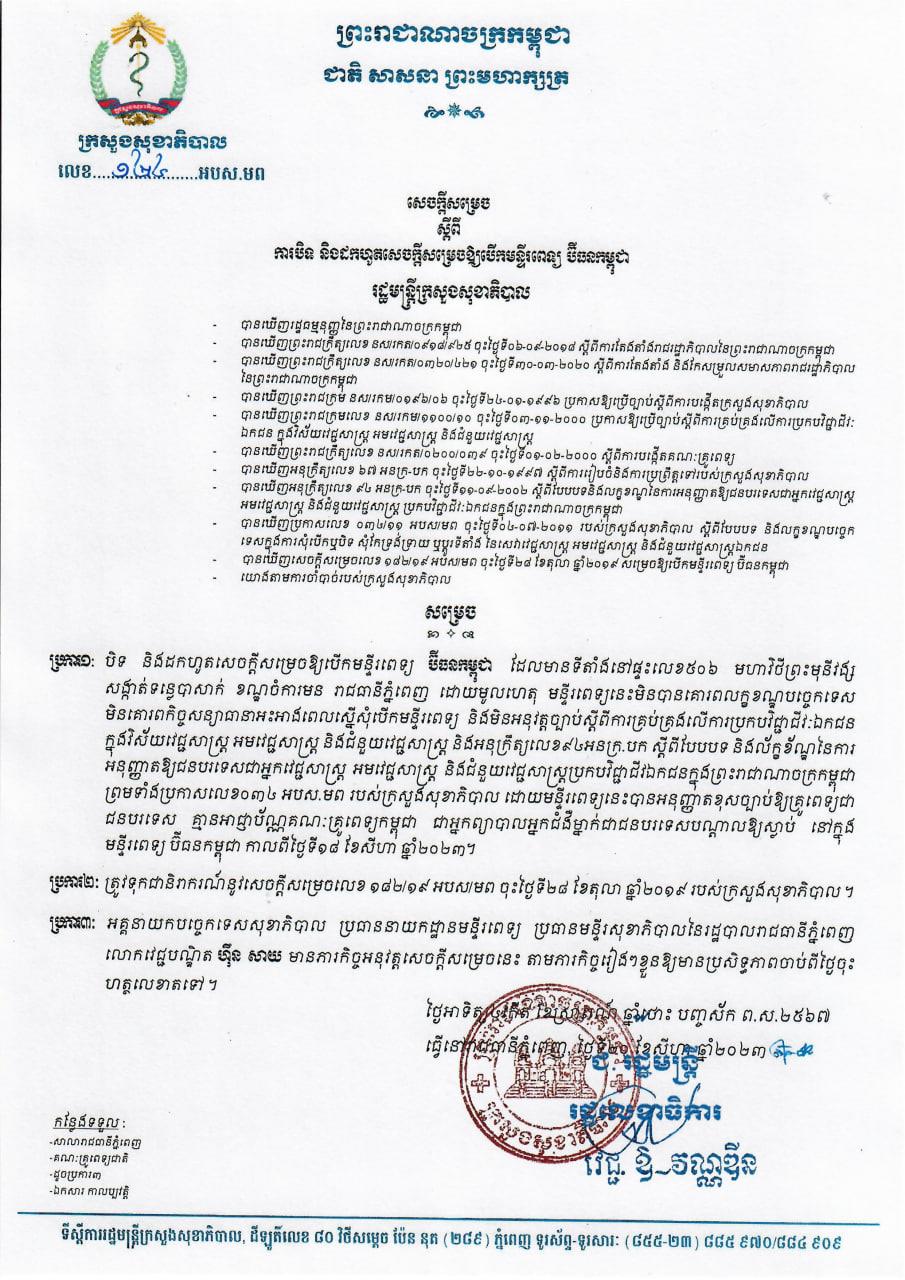 ព្រះរាជាណាចក្រកម្ពុជា
ជាតិ សាសនា ព្រះមហាក្សត្រ
ក្រសួងសុខាភិបាល
លេខ....១២៤....អបស.មព
សេចក្តីសម្រេច
ស្តីពី
ការបិទ និងដកហូតសេចក្តីសម្រេចឱ្យបើកមន្ទីរពេទ្យ ប៊ីធនកម្ពុជា
រដ្ឋមន្ត្រីក្រសួងសុខាភិបាល
- បានឃើញរដ្ឋធម្មនុញ្ញនៃព្រះរាជាណាចក្រកម្ពុជា
- បានឃើញព្រះរាជក្រឹត្យលេខ នស/រកត/០៩១៨/៩២៥ ចុះថ្ងៃទី០៦-០៩-២០១៨ ស្តីពីការតែងតាំងរាជរដ្ឋាភិបាលនៃព្រះរាជាណាចក្រកម្ពុជា
- បានឃើញព្រះរាជក្រឹត្យលេខ នស/រកត/០៣២០/៤២១ ចុះថ្ងៃទី៣០-០៣-២០២០ ស្តីពីការតែងតាំង និងកែសម្រួលសមាសភាពរាជរដ្ឋាភិបាល
នៃព្រះរាជាណាចក្រកម្ពុជា
- បានឃើញព្រះរាជក្រម នស/រកម/០១៩៦/០៦ ចុះថ្ងៃទី២៤-០១-១៩៩៦ ប្រកាសឱ្យប្រើច្បាប់ស្តីពីការបង្កើតក្រសួងសុខាភិបាល
- បានឃើញព្រះរាជក្រមលេខ នស/រកម/១១០០/១០ ចុះថ្ងៃទី០៣-១១-២០០០ ប្រកាសឱ្យប្រើច្បាប់ស្តីពីការគ្រប់គ្រងលើការប្រកបវិជ្ជាជីវៈ
ឯកជន ក្នុងវិស័យវេជ្ជសាស្ត្រ អមវេជ្ជសាស្ត្រ និងជំនួយវេជ្ជសាស្ត្រ
- បានឃើញព្រះរាជក្រឹត្យលេខ នស/រកត/០២០០/០៣៩ ចុះថ្ងៃទី០១-០២-២០០០ ស្តីពីការបង្កើតគណៈគ្រូពេទ្យ
- បានឃើញអនុក្រឹត្យលេខ ៦៧ អនក្រ-បក ចុះថ្ងៃទី២២-១០-១៩៩៧ ស្តីពីការរៀបចំនិងការប្រព្រឹត្តទៅរបស់ក្រសួងសុខាភិបាល
- បានឃើញអនុក្រឹត្យលេខ ៩៤ អនក្រ-បក ចុះថ្ងៃទី១១-០៩-២០០២ ស្តីពីបែបបទនិងលក្ខខណ្ឌនៃការអនុញ្ញាតឱ្យជនបរទេសជាអ្នកវេជ្ជសាស្ត្រ
អមវេជ្ជសាស្ត្រ និងជំនួយវេជ្ជសាស្ត្រ ប្រកបវិជ្ជាជីវៈឯកជនក្នុងព្រះរាជាណាចក្រកម្ពុជា
- បានឃើញប្រកាសលេខ ០៣៤/១១ អបស/មព ចុះថ្ងៃទី០៤-០៧-២០១១ របស់ក្រសួងសុខាភិបាល ស្តីពីបែបបទ និងលក្ខខណ្ឌបច្ចេក
ទេសក្នុងការសុំបើកឬបិទ សុំកែទ្រង់ទ្រាយ ឬប្តូរទីតាំង នៃសេវាវេជ្ជសាស្ត្រ អមវេជ្ជសាស្ត្រ និងជំនួយវេជ្ជសាស្ត្រឯកជន
- បានឃើញសេចក្តីសម្រេចលេខ ១៨២/១៩ អបស/មព ចុះថ្ងៃទី២៨ ខែតុលា ឆ្នាំ២០១៩ សម្រេចឱ្យបើកមន្ទីរពេទ្យ ប៊ីធនកម្ពុជា
- យោងតាមការចាំបាច់របស់ក្រសួងសុខាភិបាល
សម្រេច
ប្រការ១: បិទ និងដកហូតសេចក្តីសម្រេចឱ្យបើកមន្ទីរពេទ្យ ប៊ីធនកម្ពុជា ដែលមានទីតាំងនៅផ្ទះលេខ៥០៦ មហាវិថីព្រះមុនីវង្ស
សង្កាត់ទន្លេបាសាក់ ខណ្ឌចំការមន រាជធានីភ្នំពេញ ដោយមូលហេតុ មន្ទីរពេទ្យនេះមិនបានគោរពលក្ខខណ្ឌបច្ចេកទេស
មិនគោរពកិច្ចសន្យាធានាអះអាងពេលស្នើសុំបើកមន្ទីរពេទ្យ និងមិនអនុវត្តច្បាប់ស្តីពីការគ្រប់គ្រងលើការប្រកបវិជ្ជាជីវៈឯកជន
ក្នុងវិស័យវេជ្ជសាស្ត្រ អមវេជ្ជសាស្ត្រ និងជំនួយវេជ្ជសាស្ត្រ និងអនុក្រឹត្យលេខ៩៤អនក្រ.បក ស្តីពីបែបបទ និងល័ក្ខខ័ណ្ឌនៃការ
អនុញ្ញាតឱ្យជនបរទេសជាអ្នកវេជ្ជសាស្ត្រ អមវេជ្ជសាស្ត្រ និងជំនួយវេជ្ជសាស្ត្រប្រកបវិជ្ជាជីវឯកជនក្នុងព្រះរាជាណាចក្រកម្ពុជា
ព្រមទាំងប្រកាសលេខ០៣៤ អបស.មព របស់ក្រសួងសុខាភិបាល ដោយមន្ទីរពេទ្យនេះបានអនុញ្ញាតខុសច្បាប់ឱ្យគ្រូពេទ្យជា
ជនបរទេស គ្មានអាជ្ញាប័ណ្ណគណៈគ្រូពេទ្យកម្ពុជា ជាអ្នកព្យាបាលអ្នកជំងឺម្នាក់ជាជនបរទេសបណ្តាលឱ្យស្លាប់ នៅក្នុង
មន្ទីរពេទ្យ ប៊ីធនកម្ពុជា កាលពីថ្ងៃទី១៨ ខែសីហា ឆ្នាំ២០២៣។
ប្រការ២: ត្រូវទុកជានិរាករណ៍នូវសេចក្តីសម្រេចលេខ ១៨២/១៩ អបស/មព ចុះថ្ងៃទី២៨ ខែតុលា ឆ្នាំ២០១៩ របស់ក្រសួងសុខាភិបាល។
ប្រការ៣: អគ្គនាយកបច្ចេកទេសសុខាភិបាល ប្រធាននាយកដ្ឋានមន្ទីរពេទ្យ ប្រធានមន្ទីរសុខាភិបាលនៃរដ្ឋបាលរាជធានីភ្នំពេញ
លោកវេជ្ជបណ្ឌិត ហ៊ីន សាយ មានភារកិច្ចអនុវត្តសេចក្តីសម្រេចនេះ តាមភារកិច្ចរៀងៗខ្លួនឱ្យមានប្រសិទ្ធភាពចាប់ពីថ្ងៃចុះ
ហត្ថលេខាតទៅ។
ថ្ងៃអាទិត្យ ៤កើត ខែស្រាពណ៍ ឆ្នាំថោះ បញ្ចស័ក ព.ស.២៥៦៧
ធ្វើនៅរាជធានីភ្នំពេញ, ថ្ងៃទី២០ ខែសីហា ឆ្នាំ២០២៣
ជ. រដ្ឋមន្ត្រី
រដ្ឋលេខាធិការ
វេជ្ជ. ឱ វណ្ណឌីន
ក្រសួងសុខាភិបាល
កន្លែងទទួល :
-សាលារាជធានីភ្នំពេញ
-គណៈគ្រូពេទ្យជាតិ
-ដូចប្រការ៣
-ឯកសារ កាលប្បវត្តិ
ទីស្តីការរដ្ឋមន្ត្រីក្រសួងសុខាភិបាល, ដីឡូត៍លេខ ៨០ វិថីសម្តេច ប៉ែន នុត (២៨៩) ភ្នំពេញ ទូរស័ព្ទ-ទូរសារៈ (៨៥៥-២៣) ៨៨៥ ៩៧០/៨៨៤ ៩០៩